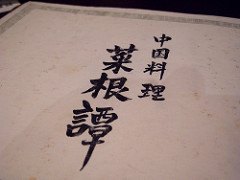 中国料理
菜根譚